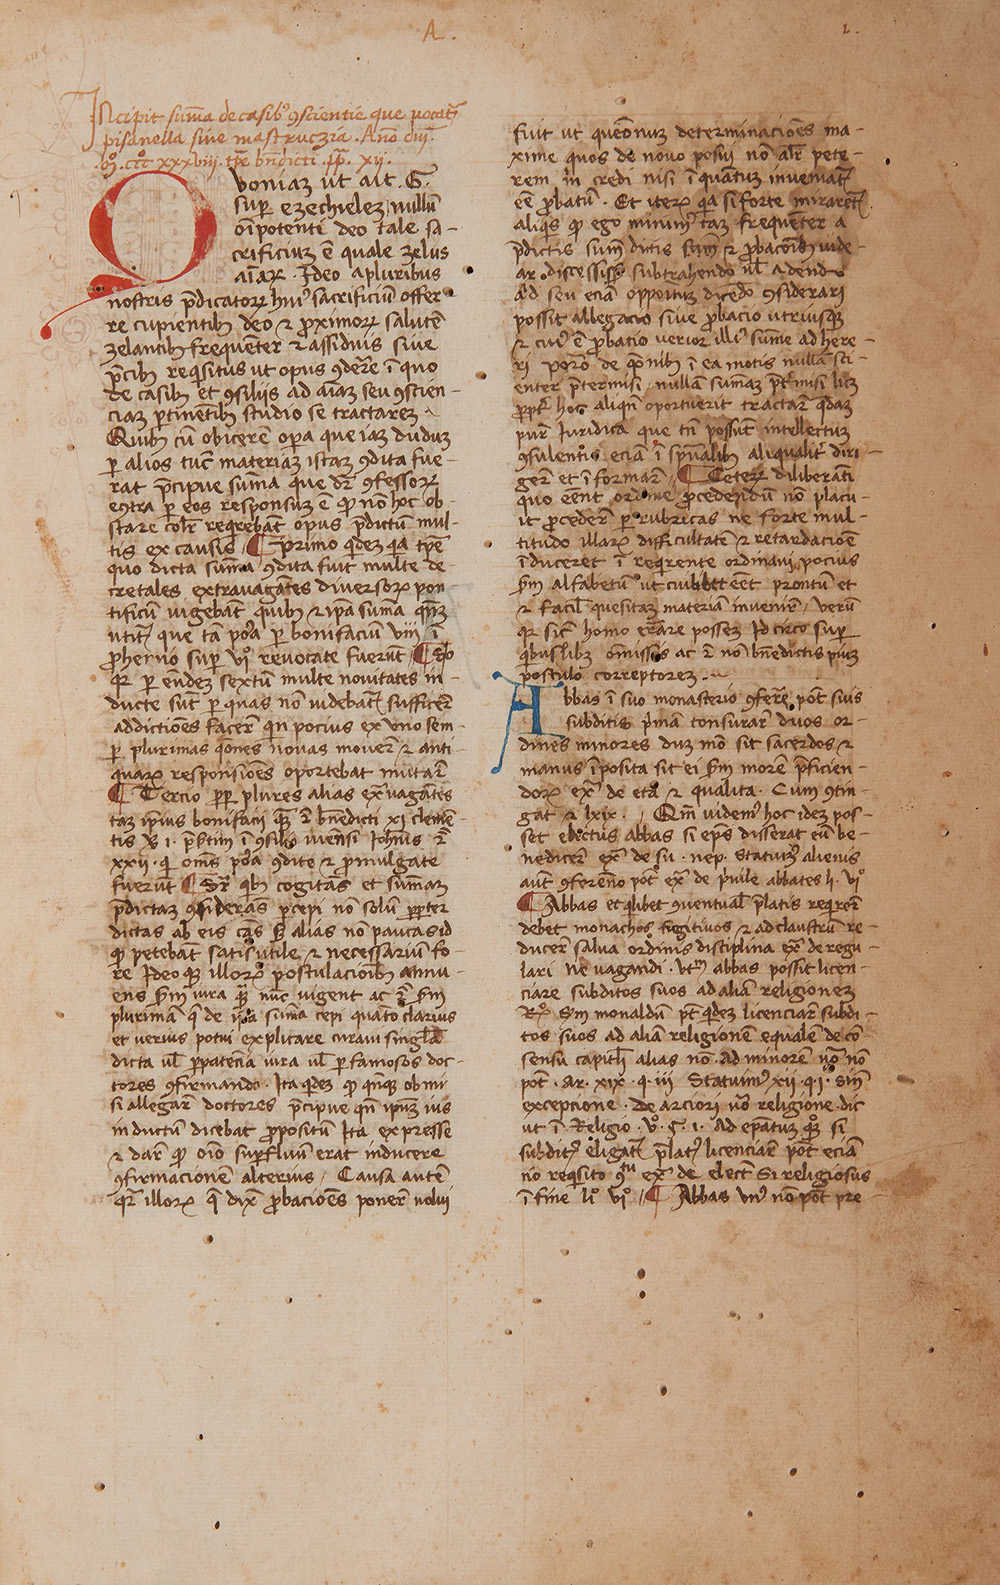 A.
1.
Incipit sum̄a de casibꝰ ꝯscientie que vocat᷑
pisanella siue mastruczia . Anno dn̄i
.mͦ. cccͦ xxxviii. tꝑe bn̄dicti .pp̄. xii.
Quoniam ut ait .G.
super ezechielem, nullū
oīpotenti deo tale sa-
crificium ē quale zelus
aīaꝝ . Ideo a pluribus
nostris p̄dicatoꝝ huiꝰ sacrificiū offer-
re cupientibꝫ deo ⁊ ꝓximoꝝ salutē
zelantibꝫ frequēter ⁊ assiduis siue
p̄cibꝫ reqͥsitus ut opus ꝯdere᷑ ī quo
de casibꝫ et ꝯsiliis ad aīam seu ꝯscien-
ciam ꝑtinentibꝫ studio se tractarem
Quibꝫ cū obicerē opera que iam dudum
ꝑ alios tūc materiam istam ꝯdita fue-
rat p̄cipue sum̄a que dr̄ ꝯfessoꝝ
ecͦntra ꝑ eos responsum ē ꝙ nō hoc ob-
stare coler̄ reqͥrebāt opus p̄dictū mul-
tis ex causis ¶ Primo qͥdem qͥa tꝑe
quo dicta sum̄a ꝯdita fuit multe de-
cretales extrauagātes diuersoꝝ pon-
tificū uigebāt quibꝫ ⁊ ip̄a sum̄a
ntit᷑ que tā poᷤa ꝑ bonifaciū viii ī
ꝓhemio super viͦ reuocate fuerūt ¶ Scͦo
qꝛ ꝑ eundem sextū multe nouitates in-
ducte sūt ꝑ quas nō uidebat᷑ sufficer̄
addictiões facer̄ qͥn pocius ex vno sem-
ꝑ plurimas qōnes nouas mouer̄ ⁊ anti-
quaꝝ responsiōes oportebat mutar̄
¶ Tercio ꝓp̄ plures alias ext̄uagātes
tam ipius bonifacii qͣm ⁊ bn̄dicti xi clemē-
tis v. i. p̄sertim ī ꝯsilio uienēsi Iohānis ⁊
xxii. qͥ om̄s poᷤa ꝯdite ⁊ ꝓmulgate
fuerūt ¶ qͥbꝫ cogitās et sum̄am
p̄dictam ꝯsiderās ꝑcepi nō solū ꝓpter
dictas ab eis cās sꝫ alias nō paucas id
ꝙ petebāt satis utile ⁊ necessariū fo-
re Ideoqꝫ illoꝝ postulacioībꝫ annu-
ens sm̄ iura qͣ nūc uigent ac ⁊ sm̄
plurimā qͣ de ip̄a sum̄a cepi quāto clarius
et verius potui explicare curaui singl̄a
dicta ul̄ ꝑ patencia iura ul̄ ꝑ famosos doc-
tores ꝯfirmando . Ita qͥdem ꝙ qn̄qꝫ ob mi
si allegar̄ doctores p̄cipue qn̄ ipm̄ ius
inductū dicebat ꝓpositū Ita expresse
⁊ clar̄ ꝙ oīo suꝑfluū erat inducere
ꝯfirmacionem alterius , Causa autē
qͣr̄ illoꝝ qͣ dixi ꝓbaciōes poner̄ nolui
fuit ut queōnum determinaciōes ma-
xime quos de nouo posui nō alr̄ pete-
rem in credi nisi īquātum inueniat᷑
eē ꝓbatū . Et iteꝝ qͥa si forte miraret᷑
aliqͥs ꝙ ego minimꝰ tam frequēter a
p̄dictis sum̄ dictis ⁊ ꝓbacoībꝫ uide-
ar discessisse subtrahendo ul̄ addendo
a̓d seu eciā oppoītum dicēdo ꝯsiderari
possit allegacio siue ꝓbacio utriusqꝫ
⁊ cuiꝰ ē ꝓbacio verior illiꝰ sum̄e adhere-
ri Porro de qōnibꝫ ī ea motis nullā sci-
enter p̄termisi , nullam sum̄am p̄t̓misi licꝫ
ꝓpt̓ hoc aliqn̄ oportuerit tractar̄ qͣdam
pur̄ Iuridica que tn̄ possūt intellectum
ꝯsulentis eciā ī spūalibꝫ aliqualit᷑ diri-
ger̄ et īformar̄ , ¶ Ceteꝝ diliberāti
quo eēnt ordine procedendū nō placu-
it proceder̄ ꝑ rubricas ne forte mul-
titudo illaꝝ difficultatē ⁊ retardaciōē
īduceret ī reqͥrente ordinaui pocius
sm̄ alfabetū ut cuilibet eēt prontū et
⁊ facil̄ quesitam materiā inuenir̄ , verū
qꝛ sic̄ homo errare possem Idcirco super
qͥbuslibꝫ omissis ac ⁊ nō bn̄edictis pium
postulo correptorem .
Abbas ī suo monasterio ꝯferre pōt suis
subditis pͥmā tonsurar̄ duos or-
dines minores dum mō sit sacerdos ⁊
manus īposita sit ei sm̄ morē p̄ficien-
doꝝ exͣ de eta ⁊ qualita . Cum ꝯtin-
gat ⁊ lxix . , Qm̄ videmꝰ hoc idem pos-
set electus abbas si ep̄s disserat eū be-
nedicer̄ exͣ de su . nep. Statuimꝰ alienis
aut ꝯferēno pōt exͣ de pͥuile abbates li. viͦ
¶ Abbas et qͥlibet ꝯuentual̄ p̄latis reqͥrer̄
debet monachos fugitiuos ⁊ ad claustrū re-
ducer̄ salua ordinis disciplina exͣ de regu-
lari Ne vagandi . Vtͫ abbas possit licen-
ciare subditos suos ad aliā religionem
Rͦ. Sm̄ monaldū pōt qͥdem licenciar̄ subdi-
tos suos ad aliā religionē equalē de cō-
sensu capitl̄i alias nō . ad minorē uͦo nō
pōt . ar. xix . q. iii Statuimꝰ xii . q. i . sin̄
excepcione . De arciori uͦo religione . dic̄
ut ī Religio . vͦ. §. i . Ad ep̄atum qͦqꝫ si
subditꝰ eligat᷑ p̄latꝰ licenciar̄ pōt eciā
nō reqͥsito ꝯͭu exͣ de elect̄ Si religiosus
ī fine liͦ viͦ , ¶ Abbas vnꝰ nō pōt pre-